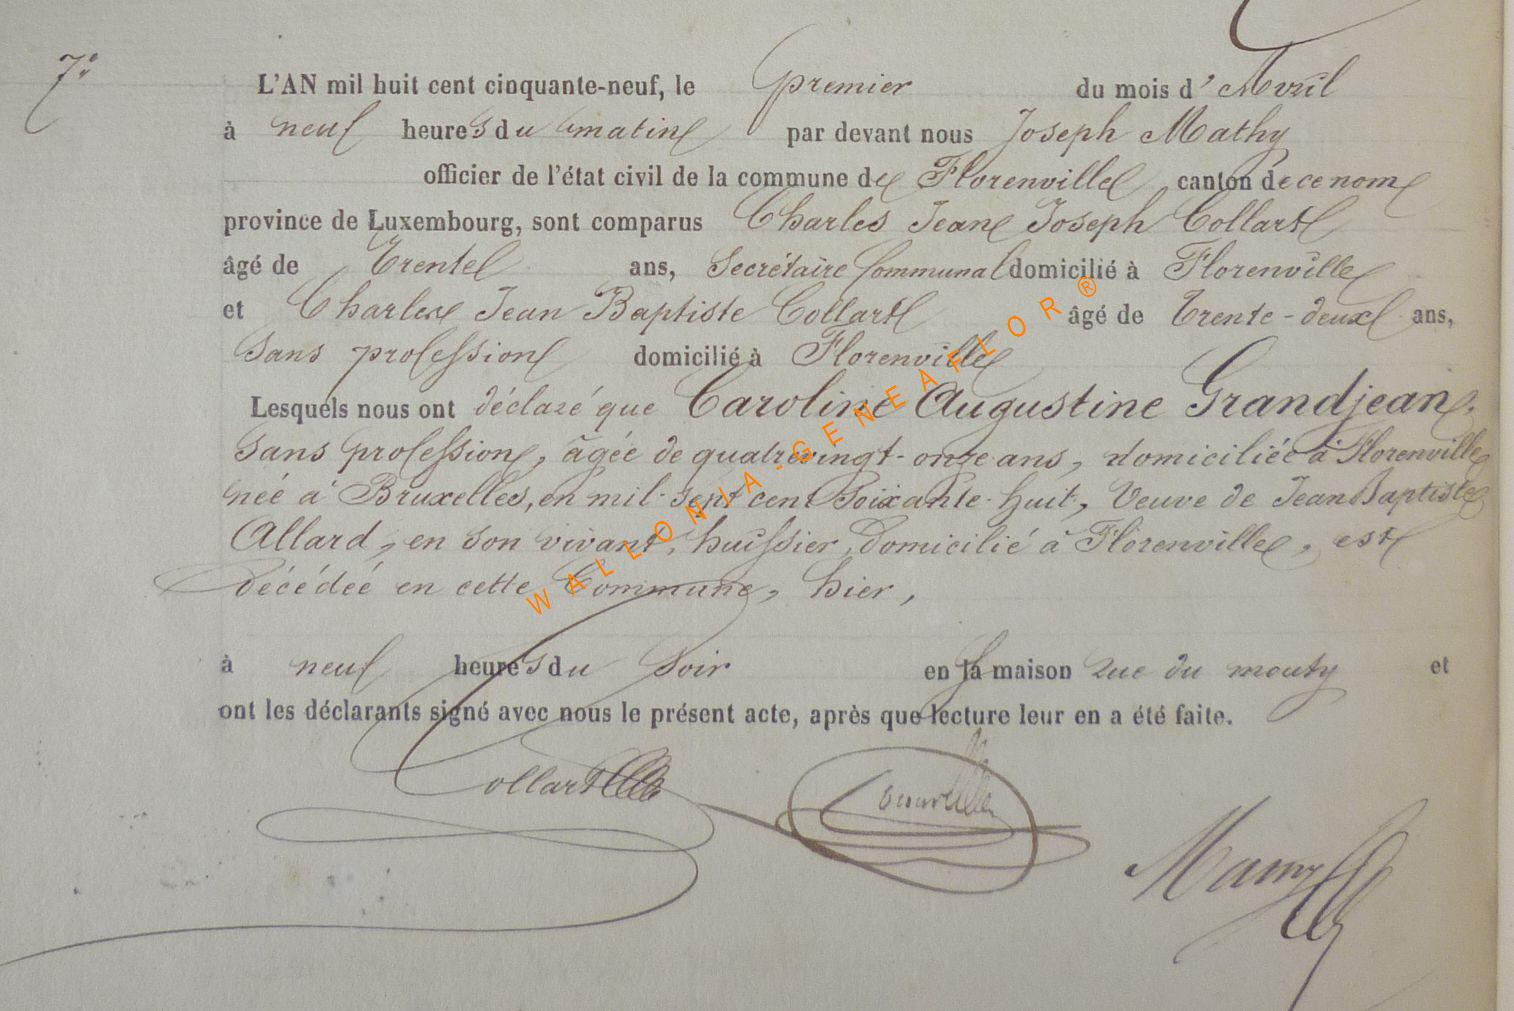 7°
L'AN mil huit cent cinquante-neuf, le premier du mois d' Avril
à neuf heures du matin par devant nous Joseph Mathy
officier de l'état civil de la commune de Florenville canton de ce nom
province de Luxembourg, sont comparus Charles Jean Joseph Collart
âgé de Trente ans, Secrétaire Communal domicilié à Florenville
et Charles Jean Baptiste Collart âgé de Trente-deux ans,
Sans profession domicilié à Florenville
Lesquels nous ont déclaré que Caroline Augustine Grandjean,
Sans profession, âgée de quatrevingt-onze ans, domiciliée à Florenville
née à Bruxelles, en mil-sept cent soixante-huit, Veuve de Jean Baptiste
Allard, en son vivant, huissier, domicilié à Florenville, est
décédée en cette Commune, hier,
à neuf heures du Soir en la maison rue du mouty et
ont les déclarants signé avec nous le présent acte, après que lecture leur en a été faite.
Collart
WALLONIA-GENEAFLOR®